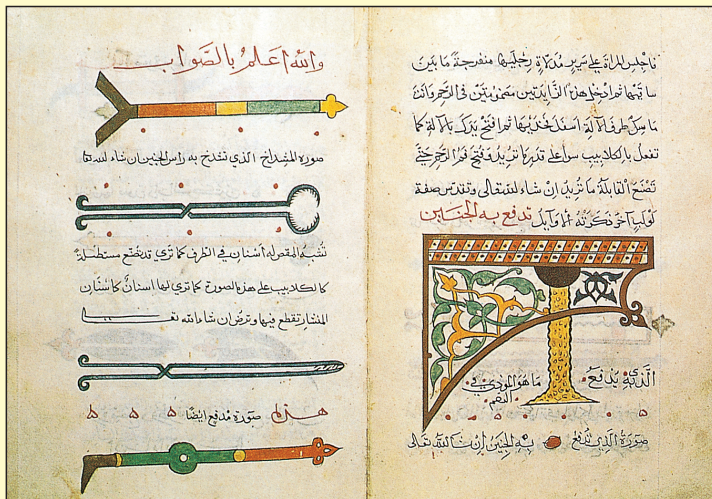 فاجلس المراة على سرير مدلاة رجليها منفرجة ما بين
ساقيها ثم ادخل هذه الزايدتين مضمومتين في الرحم وانت
ماسك طرف الالة اسفل فخذيها ثم افتح يدك بالالة كما
تفعل بالكلاليب سوا على قدر ما تريد فتح فم الرحم حتى
تصنع القابلة ما تريد ان شاء الله تعالى وتقدس صفة
لولب آخر ذكرته الاوايل تدفع به الجنين
الذي يدفع به
ما هو المؤذي في
الفم
صورة الذي تدفع به الجنين ان شا الله تعالى
والله اعلم بالصواب
صورة المشداخ الذي تشدخ به راس الجنين ان شاء الله تعا
تشبه المقص له اسنان في الطرف كما ترى قد تصنع مستطيلة
كالكلاليب على هذه الصورة كما ترى لها اسنان كاسنان
المنشار تقطع فيها وترض ان شاء الله تعا
هذه صورة مدفع ايضا